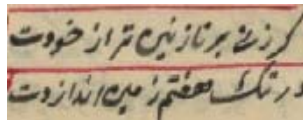 گر زنی بر نازنین‌تر از خودت
در تگ هفتم زمین اندازدت